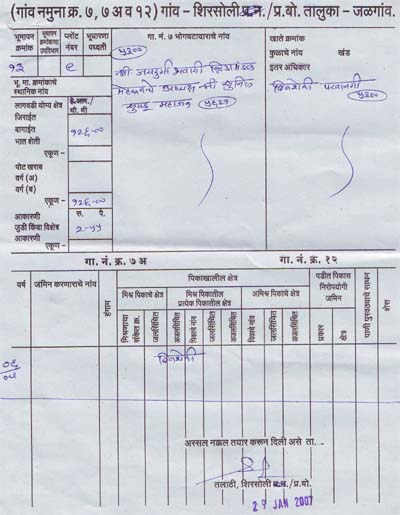 (गांव नमुना क्र. ७, ७ अ व १२) गांव - शिरसोली प्र.न./प्र.बो. तालुका - जळगांव.
भूमापन क्रमांक
भूमापन क्रमांकाचा उपविभाग
प्लॉट नंबर
भूधारणा पध्दती
गा. नं. ७ भोगवटादाराचे नांव
खाते क्रमांक
५३००
कुळाचे नांव खंड
इतर अधिकार
९
श्री जयदुर्गा भवानी
अध्यक्ष श्री सुनिल
महाजन
बिनशेती परवानगी
५३००
भू. मा. क्रमांकाचे स्थानिक नांव
लागवडी योग्य क्षेत्र
हे.आर./चौ.मी
जिराईत
बागाईत
१२६-००
भात शेती
एकूण -
पोट खराब
वर्ग (अ)
वर्ग (ब)
एकूण -
१२६-००
आकारणी रु. पै.
जुडी किंवा विशेष
२-५५
आकारणी
एकूण -
गा. नं. क्र. ७ अ गा. नं. क्र. १२
वर्ष
जमिन करणाराचे नांव
हंगाम
पिकाखालील क्षेत्र
पडीत पिकास निरोपयोगी जमिन
पाणी पुरवठ्याचे साधन
शेरा
मिश्र पिकाचे क्षेत्र
मिश्र पिकातील प्रत्येक पिकातील क्षेत्र
अमिश्र पिकाचे क्षेत्र
मिश्रणाचा संकेत क्र.
जलसिंचित
अजलसिंचित
पिकाचे नांव
जलसिंचित
अजलसिंचित
पिकाचे नांव
जलसिंचित
अजलसिंचित
प्रकार
क्षेत्र
बिनशेती
अस्सल नक्कल तयार करून दिली असे ता. -
तलाठी, शिरसोली प्र.न./प्र.बो.
29 JAN 2007